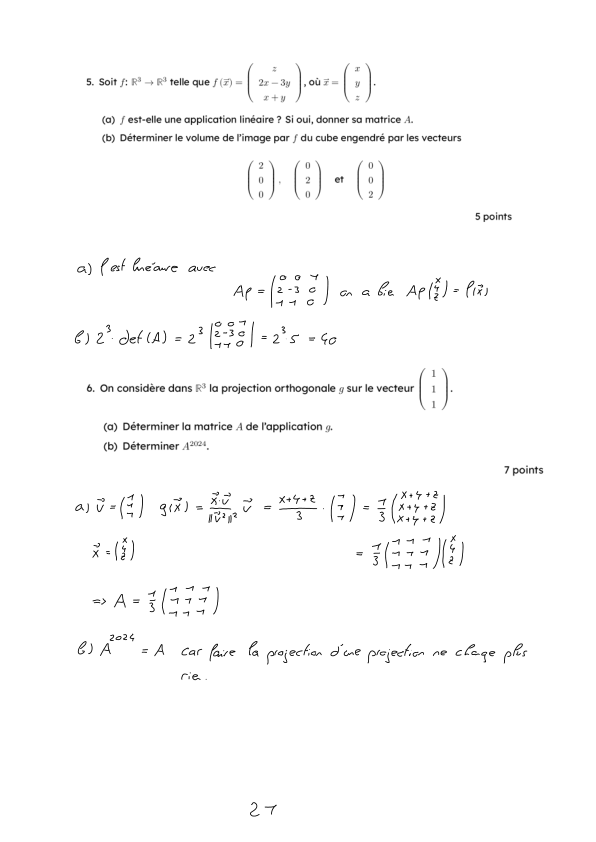 5. Soit f: ℝ³ → ℝ³ telle que f(x⃗) = ( z ; 2x − 3y ; x + y ), où x⃗ = ( x ; y ; z ).
(a) f est-elle une application linéaire ? Si oui, donner sa matrice A.
(b) Déterminer le volume de l'image par f du cube engendré par les vecteurs
( 2 ; 0 ; 0 ), ( 0 ; 2 ; 0 ) et ( 0 ; 0 ; 2 )
5 points
a) f est linéaire avec
Af = ( 0 0 1 ; 2 -3 0 ; 1 1 0 ) on a bie Af ( x ; y ; z ) = f(x⃗)
b) 2³ · det(A) = 2³ | 0 0 1 ; 2 -3 0 ; 1 1 0 | = 2³ 5 = 40
6. On considère dans ℝ³ la projection orthogonale g sur le vecteur ( 1 ; 1 ; 1 ).
(a) Déterminer la matrice A de l'application g.
(b) Déterminer A²⁰²⁴.
7 points
a) v⃗ = ( 1 ; 1 ; 1 ) g(x⃗) = x⃗·v⃗ / ||v⃗²||² v⃗ = x+y+z / 3 · ( 1 ; 1 ; 1 ) = 1/3 ( x+y+z ; x+y+z ; x+y+z )
x⃗ = ( x ; y ; z ) = 1/3 ( 1 1 1 ; 1 1 1 ; 1 1 1 ) ( x ; y ; z )
=> A = 1/3 ( 1 1 1 ; 1 1 1 ; 1 1 1 )
b) A²⁰²⁴ = A car faire la projection d'une projection ne change plus
rie.
21